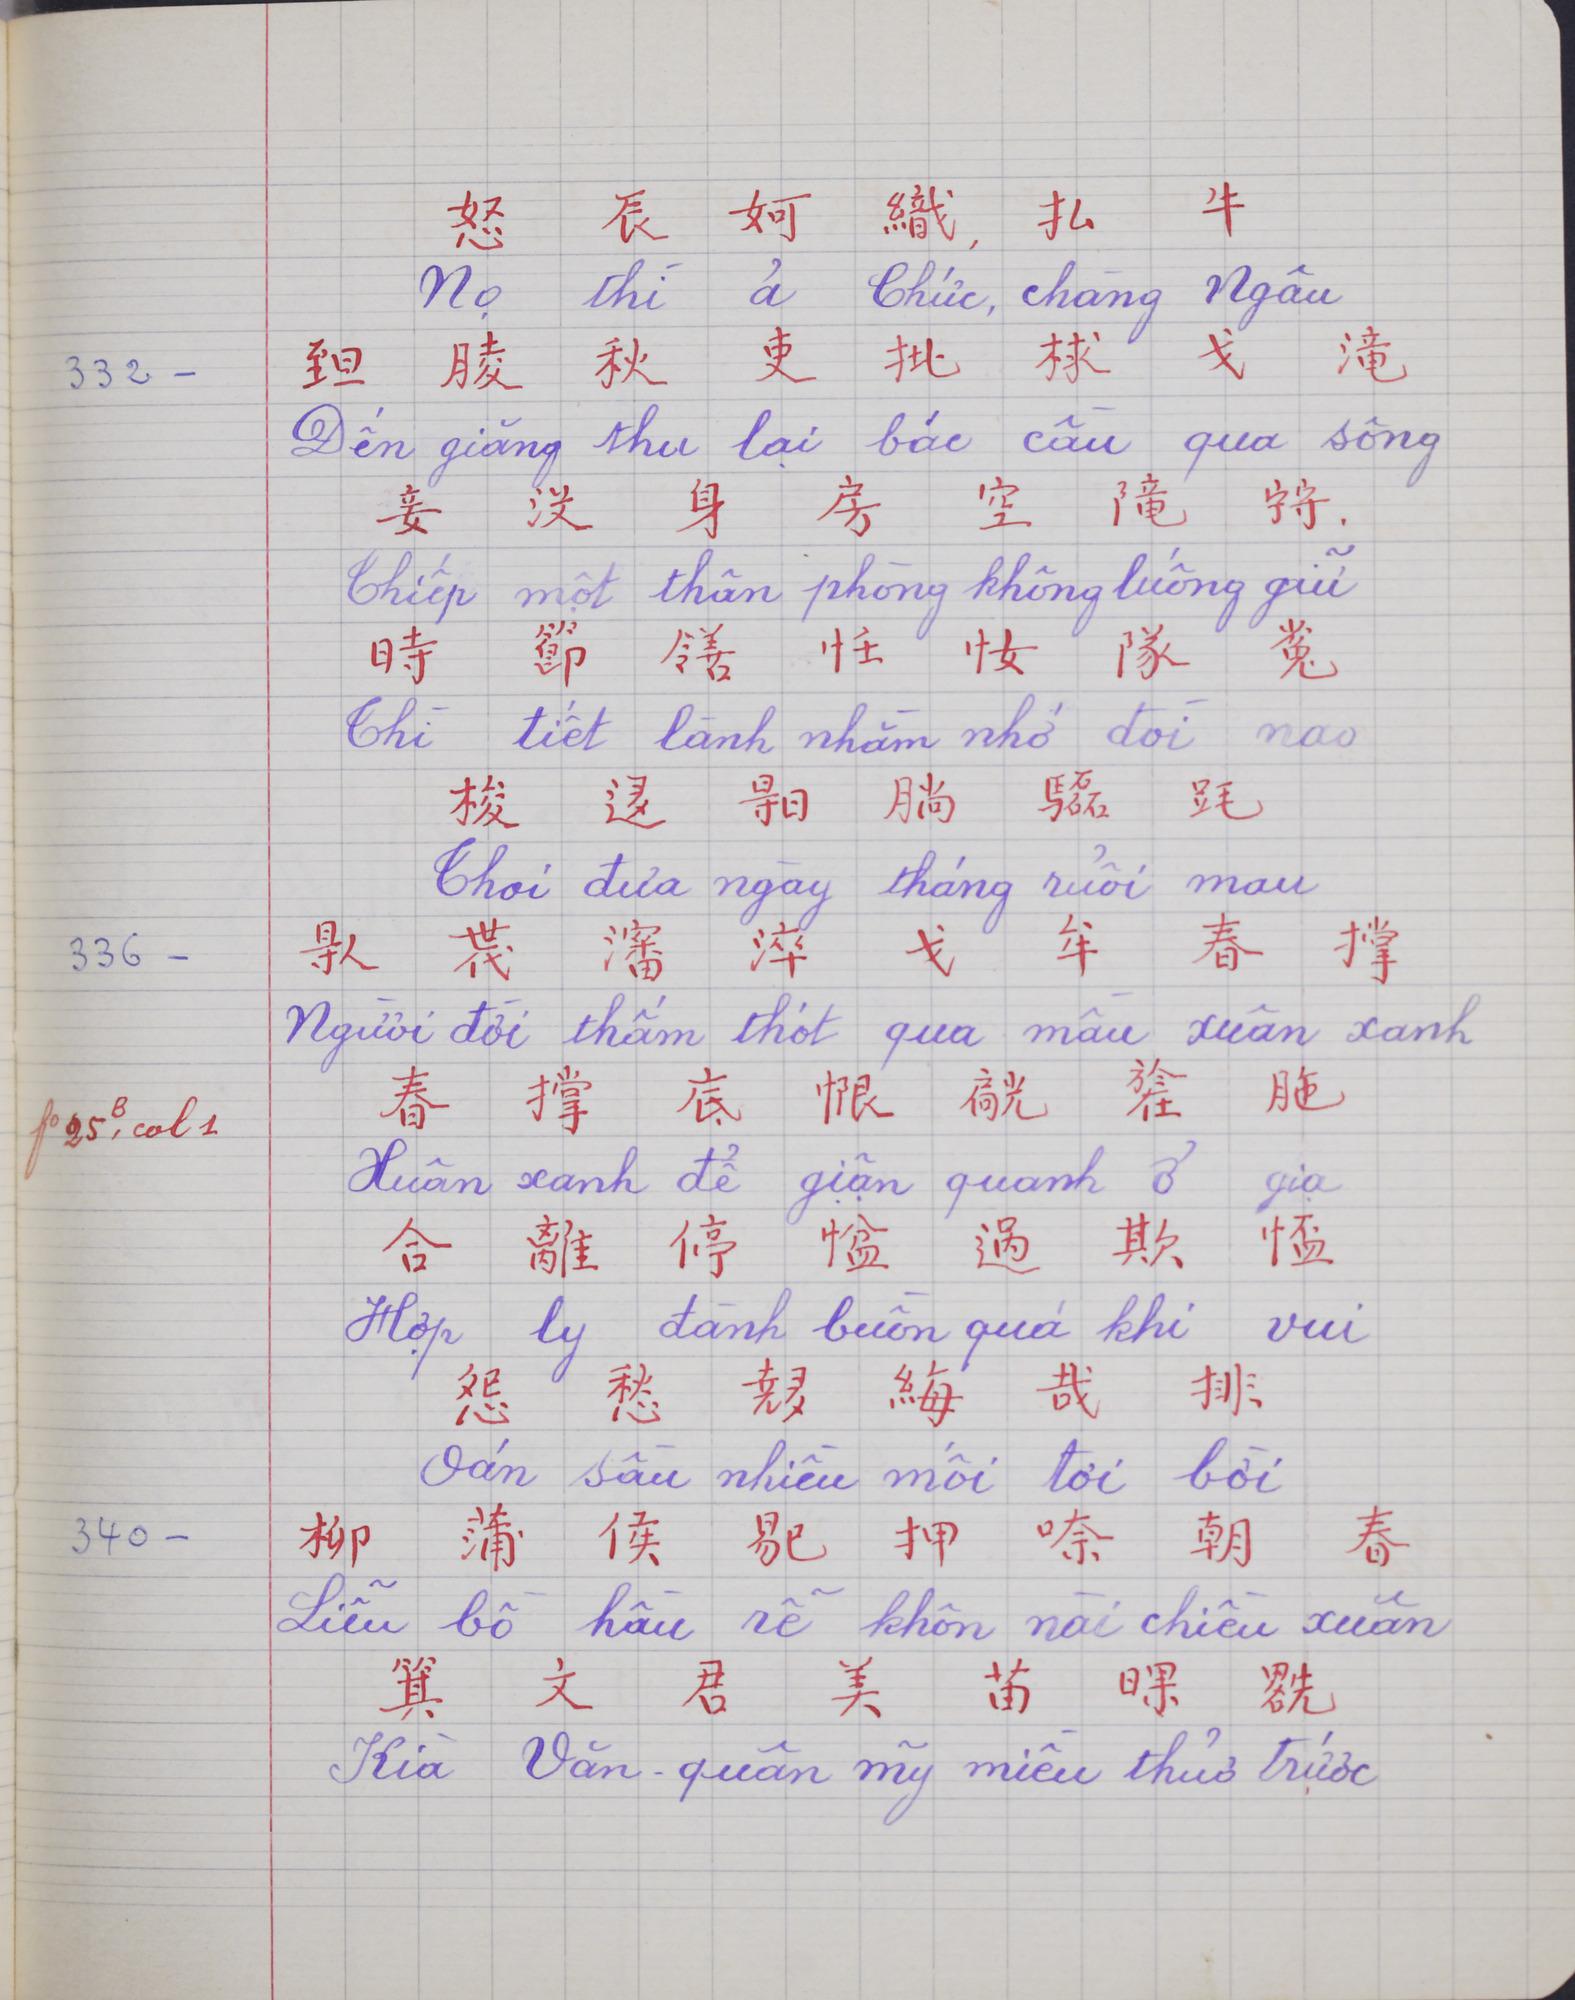 怒 辰 妸 織, 払 牛
Nọ thì ả Chức, chàng Ngâu
332 - 𦤾 𦝄 秋 吏 批 梂 戈 滝
Đến giăng thu lại bắc cầu qua sông
妾 没 身 房 空 隴 㝒.
Thiếp một thân phòng không luống giữ
時 節 𫅜 恁 𢖵 隊 鴌
Thì tiết lành nhầm nhỡ đòi nao
梭 迻 𣈜 𣎃 𩧍 𨀌
Thoi đưa ngày tháng ruổi mau
336 - 𠊛 𠁀 瀋 淬 戈 牟 春 撑
Người đời thấm thót qua màu xuân xanh
fº 25ᴮ, col 1
春 撑 底 恨 觥 於 胣
Xuân xanh để giận quanh ở giạ
合 離 停 㥢 過 欺 𢝙
Hợp ly đành buồn quá khi vui
怨 愁 𡗉 䋦 哉 排
Oán sầu nhiều mối tơi bời
340 - 柳 蒲 侯 易 押 㖠 朝 春
Liễu bồ hầu rễ khôn nài chiều xuân
箕 文 君 美 苗 𣇞 𠓀
Kìa Văn-quân mỹ miều thuở trước